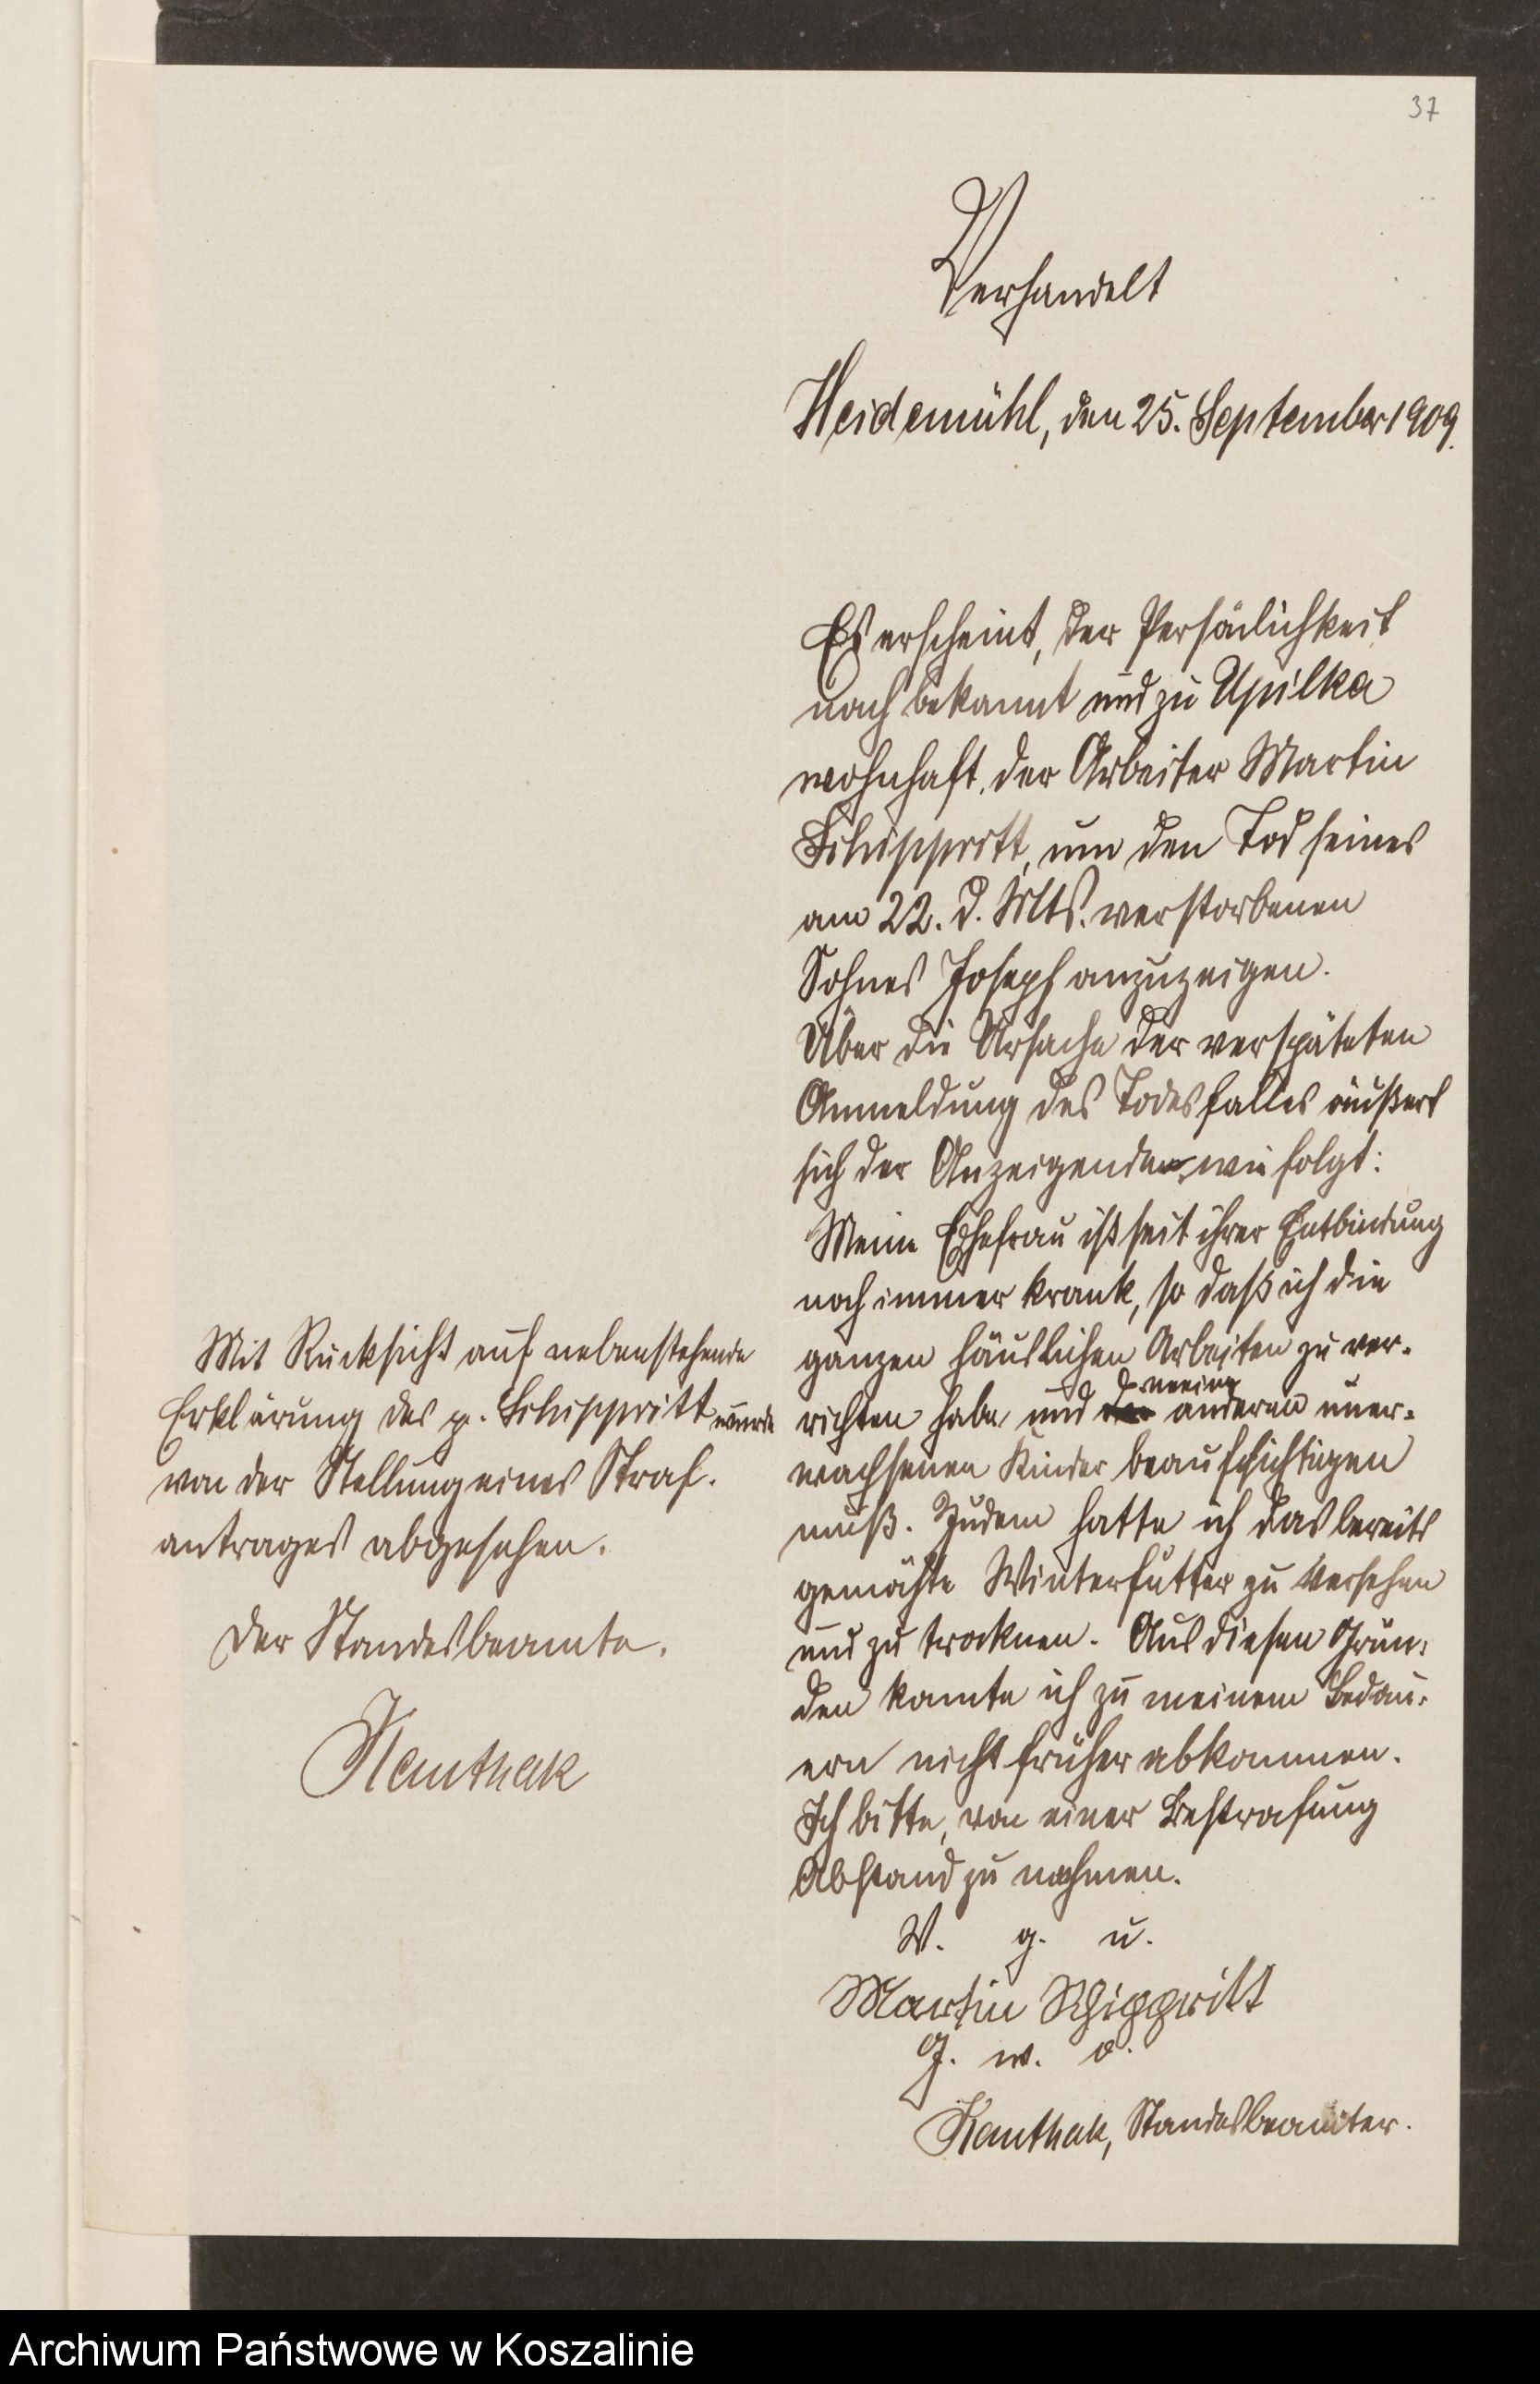 37
Verhandelt
Heidemühl, den 25. September 1909.
Es erscheint, der Persönlichkeit
nach bekannt und zu Upilka
wohnhaft, der Arbeiter Martin
Schippritt, um den Tod seines
am 22. d. Mts. verstorbenen
Sohnes Joseph anzuzeigen.
Über die Ursache der verspäteten
Anmeldung des Todesfalles äußert
sich der Anzeigende wie folgt:
Meine Ehefrau ist seit ihrer Entbindung
noch immer krank, so daß ich die
ganzen häuslichen Arbeiten zu ver-
richten habe und meine anderen uner-
wachsenen Kinder beaufsichtigen
muß. Zudem hatte ich das bereits
gemähte Winterfutter zu versehen
und zu trocknen. Aus diesen Grün-
den konnte ich zu meinem Bedau-
ern nicht früher abkommen.
Ich bitte, von einer Bestrafung
Abstand zu nehmen.
V. g. u.
Martin Schippritt
G. w. o.
Kanthak, Standesbeamter.
Mit Rücksicht auf nebenstehende
Erklärung des p. Schippritt wurde
von der Stellung eines Straf-
antrages abgesehen.
Der Standesbeamte.
Kanthak
Archiwum Państwowe w Koszalinie